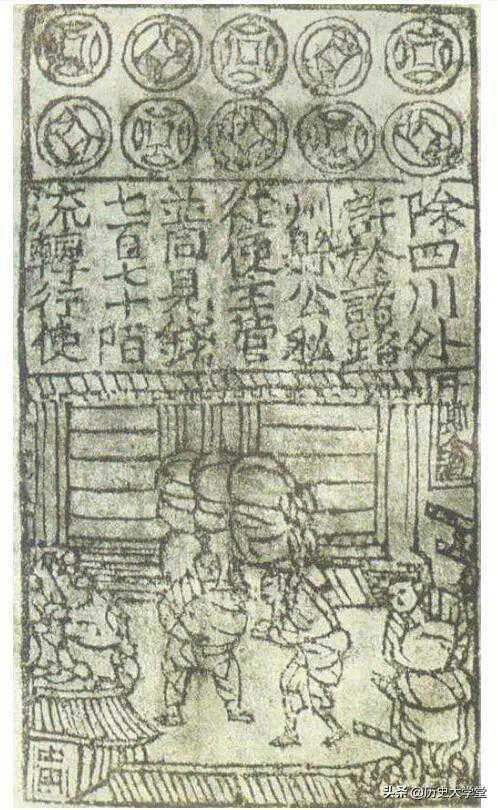 除四川外
許於諸路
州縣公私
從便主管
並同見錢
七百七十陌
流轉行使
头条 @历史大学堂